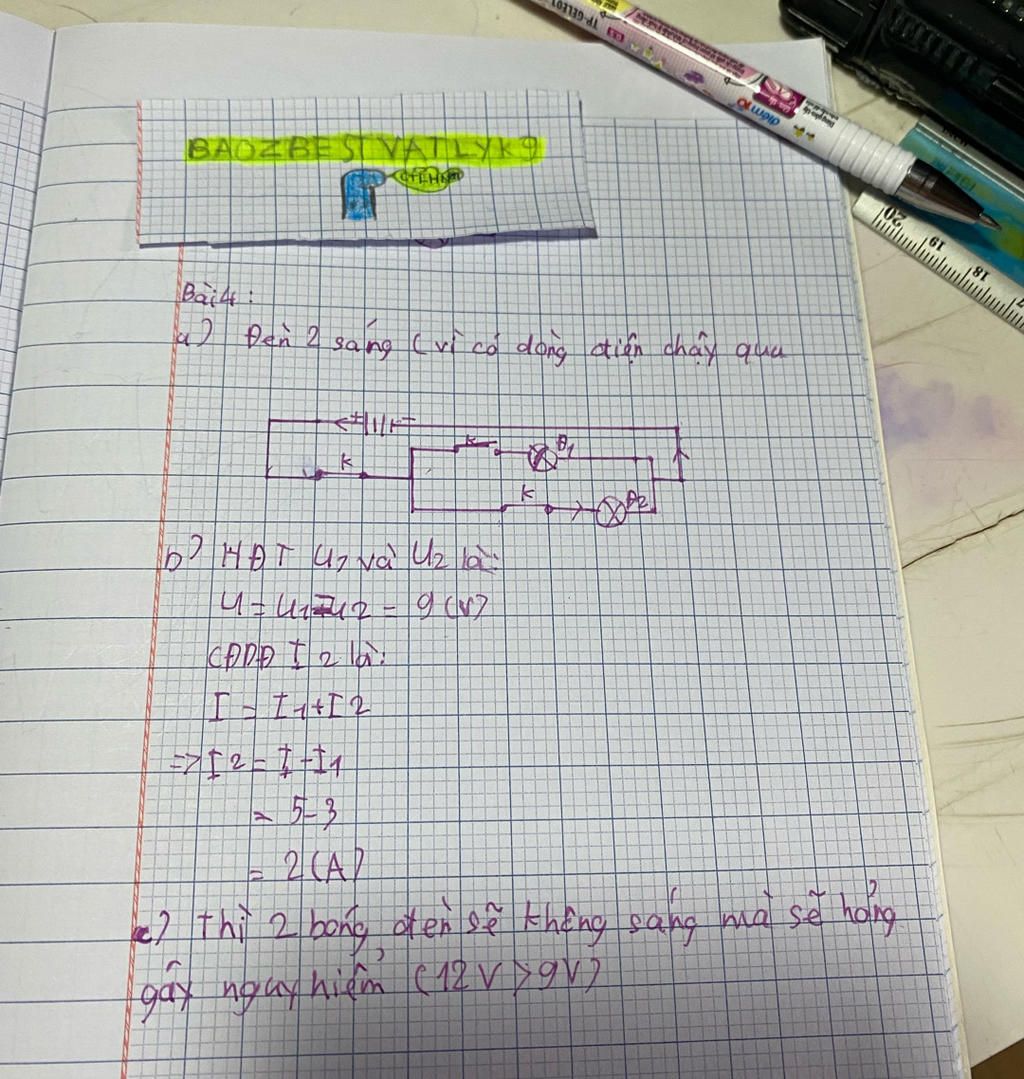 TP-GELE01
điểm 10
BAOZBESTVATLYK9
20
19
18
17
Bài 4:
a) Đèn 2 sáng (vì có dòng điện chạy qua
+ -
K
Đ1
K
K
Đ2
b) HĐT U1 và U2 là:
U = U1 = U2 = 9 (V)
CĐDĐ I2 là:
I = I1 + I2
=> I2 = I - I1
= 5 - 3
= 2 (A)
c) Thì 2 bóng đèn sẽ không sáng mà sẽ hỏng
gây nguy hiểm (12V > 9V)